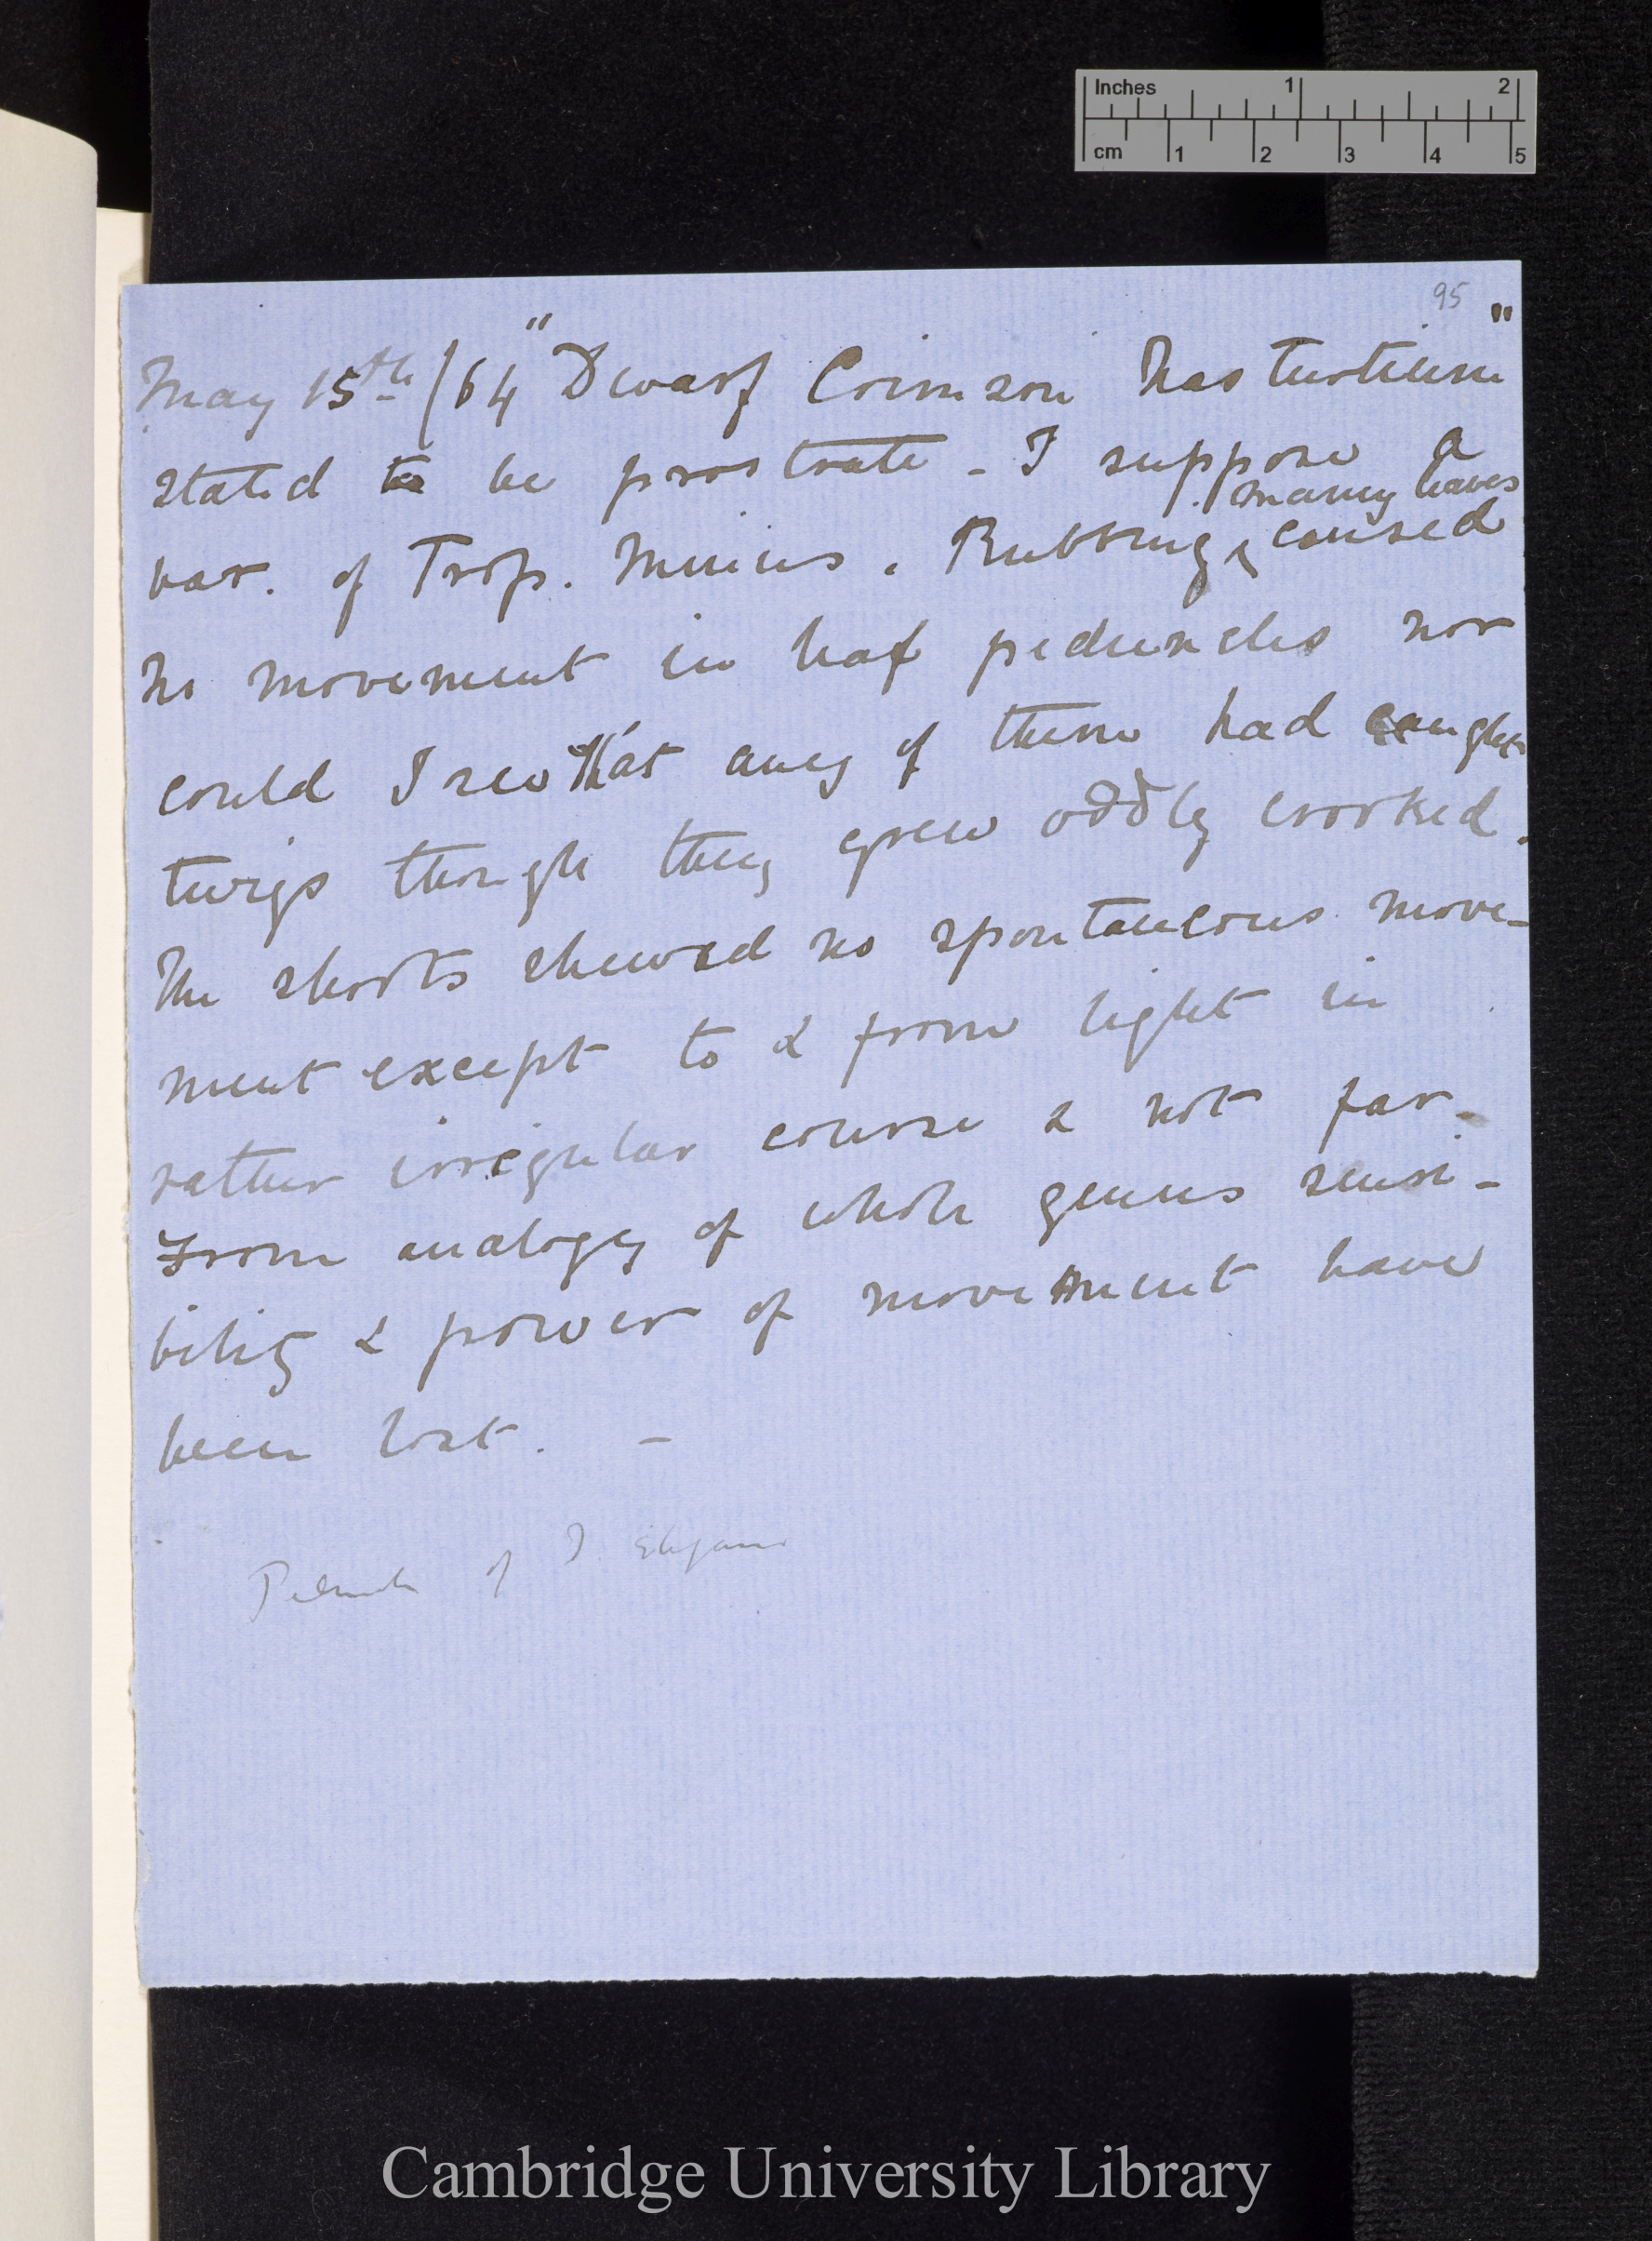 Inches 1 2
cm 1 2 3 4 5
95
May 15th/64 "Dwarf Crimson Nasturtium"
stated to be prostrate - I suppose a
many leaves
var. of Trop. Minius. Rubbing ^ caused
no movement in leaf peduncles nor
could I see that any of them had caught
twigs though they grew oddly crooked.
The shoots shewed no spontaneous move-
ment except to & from light in
rather irregular course & not far.
From analogy of whole genus sensi-
bility & power of movement have
been lost. -
of T. Elegans
Cambridge University Library